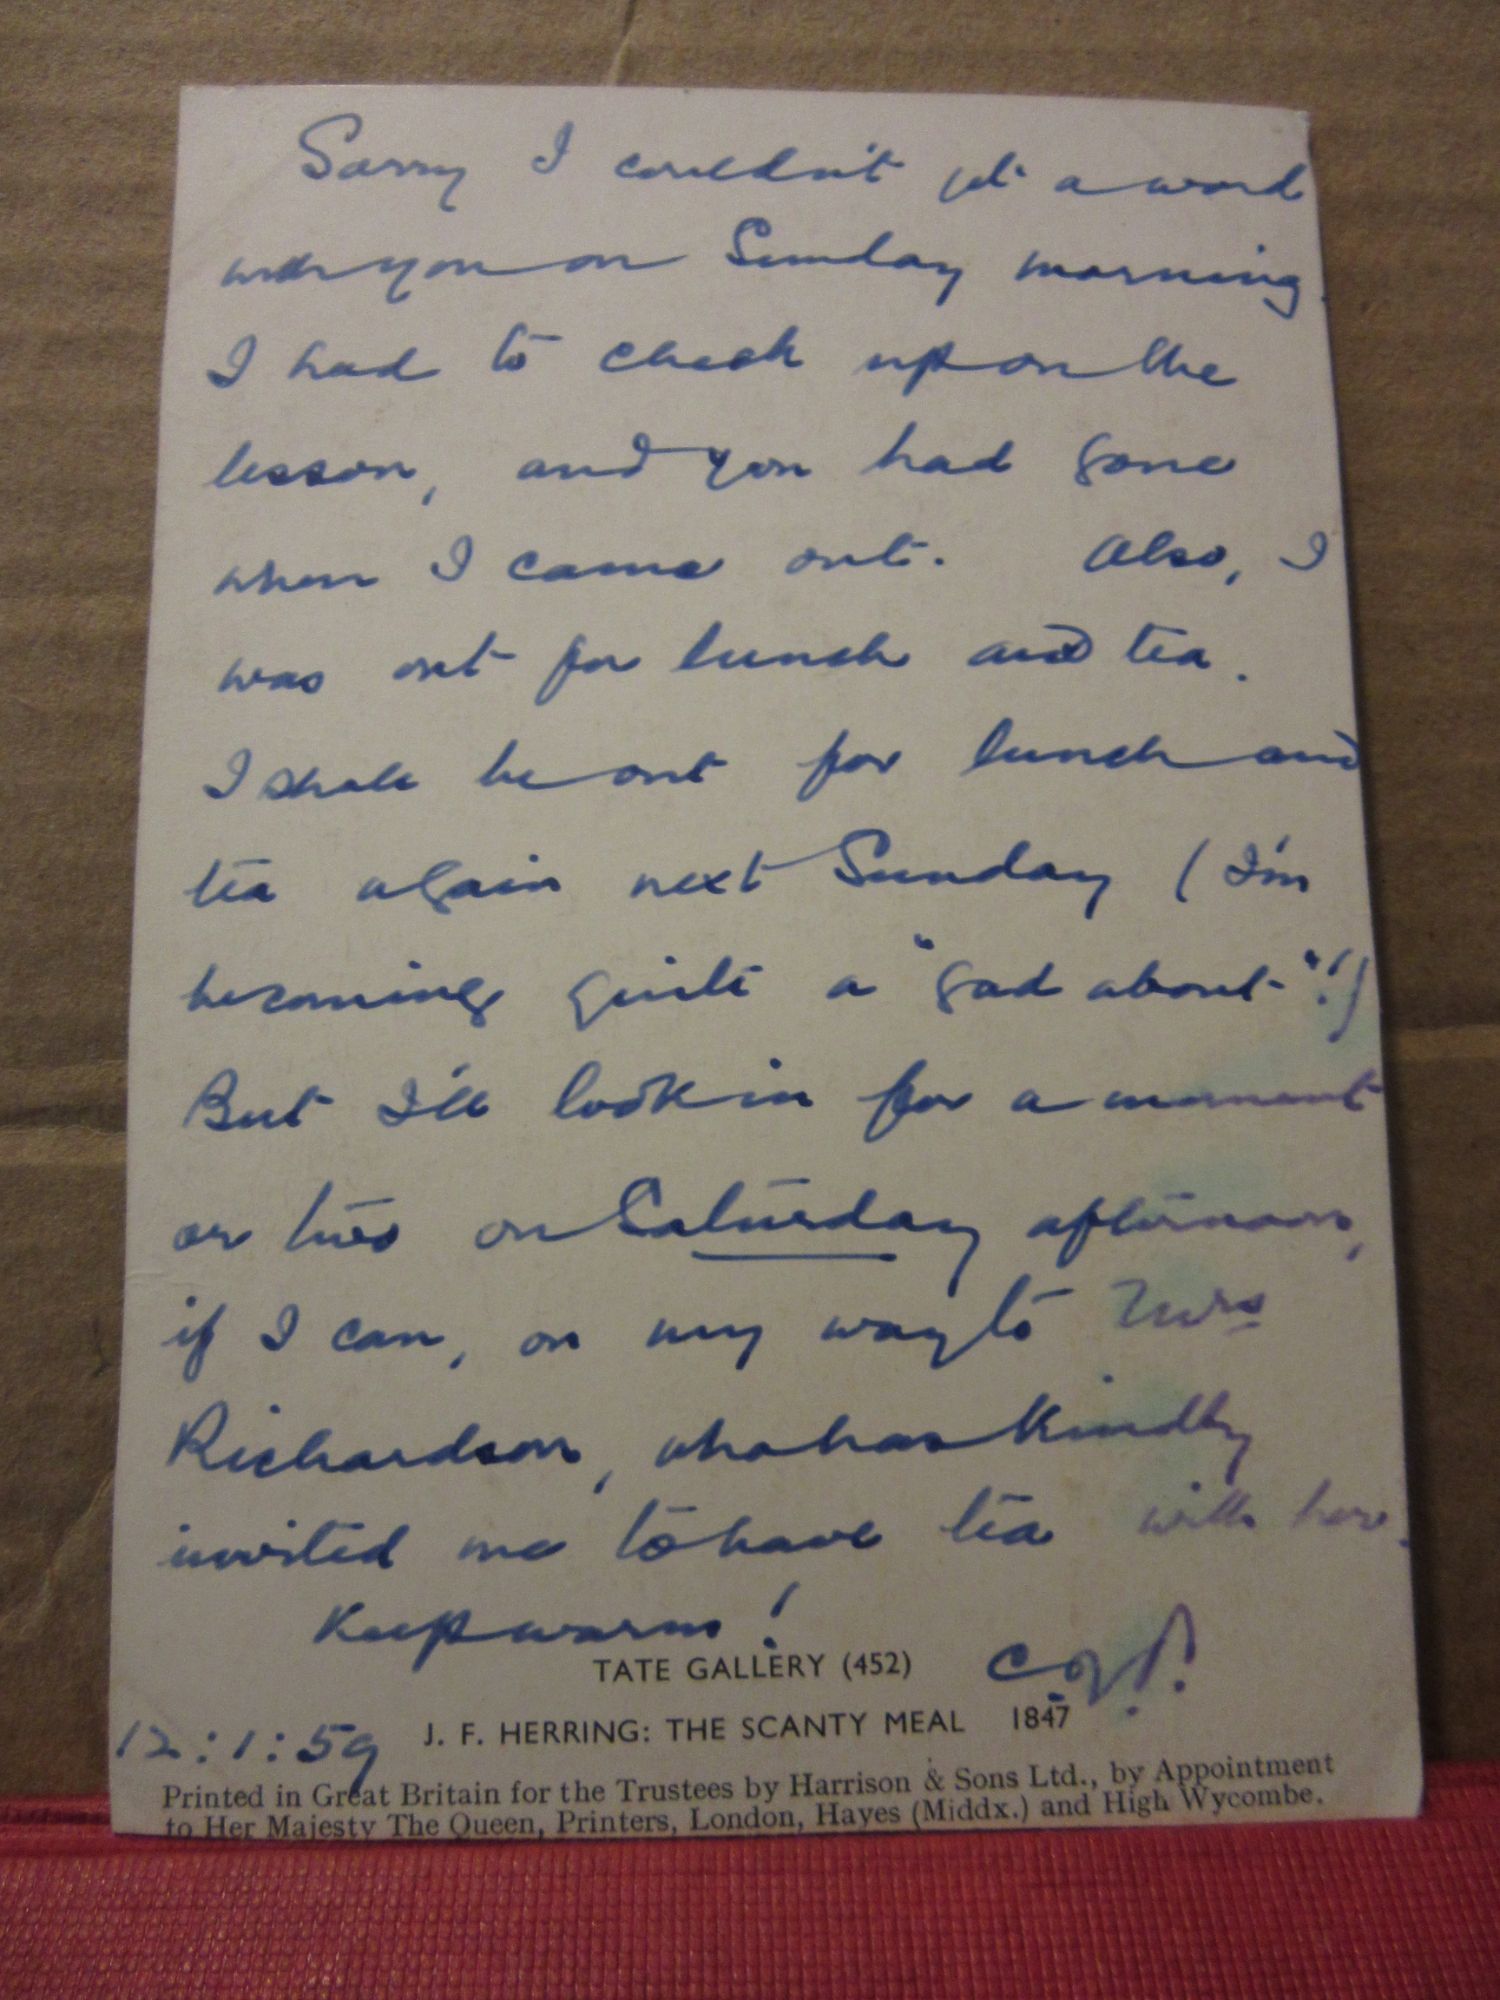 Sorry I couldn't get a word
with you on Sunday morning.
I had to check up on the
lesson, and you had gone
when I came out. Also, I
was out for lunch and tea.
I shall be out for lunch and
tea again next Sunday (I'm
becoming quite a "gad about"!)
But I'll look in for a moment
or two on Saturday afternoon,
if I can, on my way to Mrs
Richardson, who has kindly
invited me to have tea with her.
Keep warm!
TATE GALLERY (452)
J. F. HERRING: THE SCANTY MEAL 1847
12:1:59
Printed in Great Britain for the Trustees by Harrison & Sons Ltd., by Appointment
to Her Majesty The Queen, Printers, London, Hayes (Middx.) and High Wycombe.